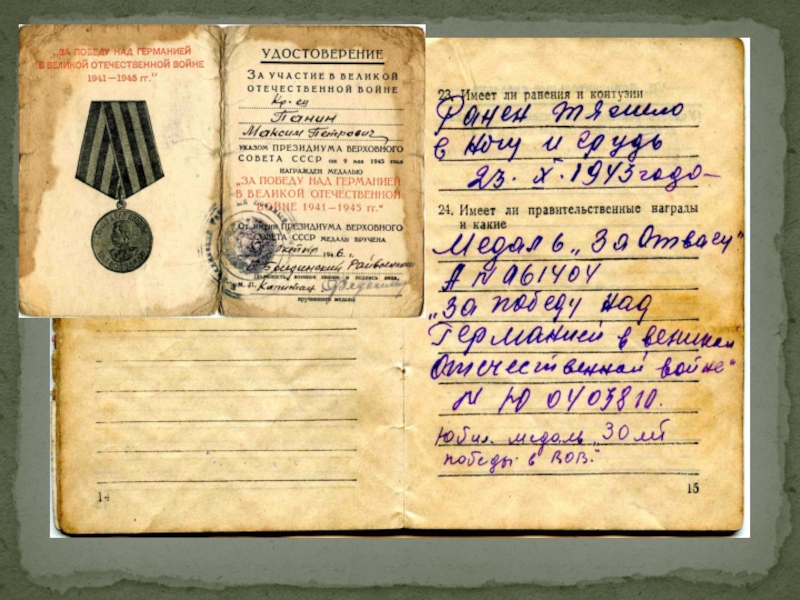 „ЗА ПОБЕДУ НАД ГЕРМАНИЕЙ
В ВЕЛИКОЙ ОТЕЧЕСТВЕННОЙ ВОЙНЕ
1941—1945 гг.“
УДОСТОВЕРЕНИЕ
ЗА УЧАСТИЕ В ВЕЛИКОЙ
ОТЕЧЕСТВЕННОЙ ВОЙНЕ
Кр-ец
Панин
Максим Петрович
УКАЗОМ ПРЕЗИДИУМА ВЕРХОВНОГО
СОВЕТА СССР от 9 мая 1945 года
НАГРАЖДЕН МЕДАЛЬЮ
„ЗА ПОБЕДУ НАД ГЕРМАНИЕЙ
В ВЕЛИКОЙ ОТЕЧЕСТВЕННОЙ
ВОЙНЕ 1941—1945 гг.“
От имени ПРЕЗИДИУМА ВЕРХОВНОГО
СОВЕТА СССР МЕДАЛЬ ВРУЧЕНА
1946 г.
М. П. Капитан
вручившего медаль
14
23. Имеет ли ранения и контузии
Ранен тяжело
в ногу и грудь
23. X. 1943 года
24. Имеет ли правительственные награды
и какие
Медаль „За Отвагу“
А N 961404
„За победу над
Германией в великой
Отечественной войне“
N Ю 0403810.
Юбил. медаль „30 лет
победы в ВОВ.“
15